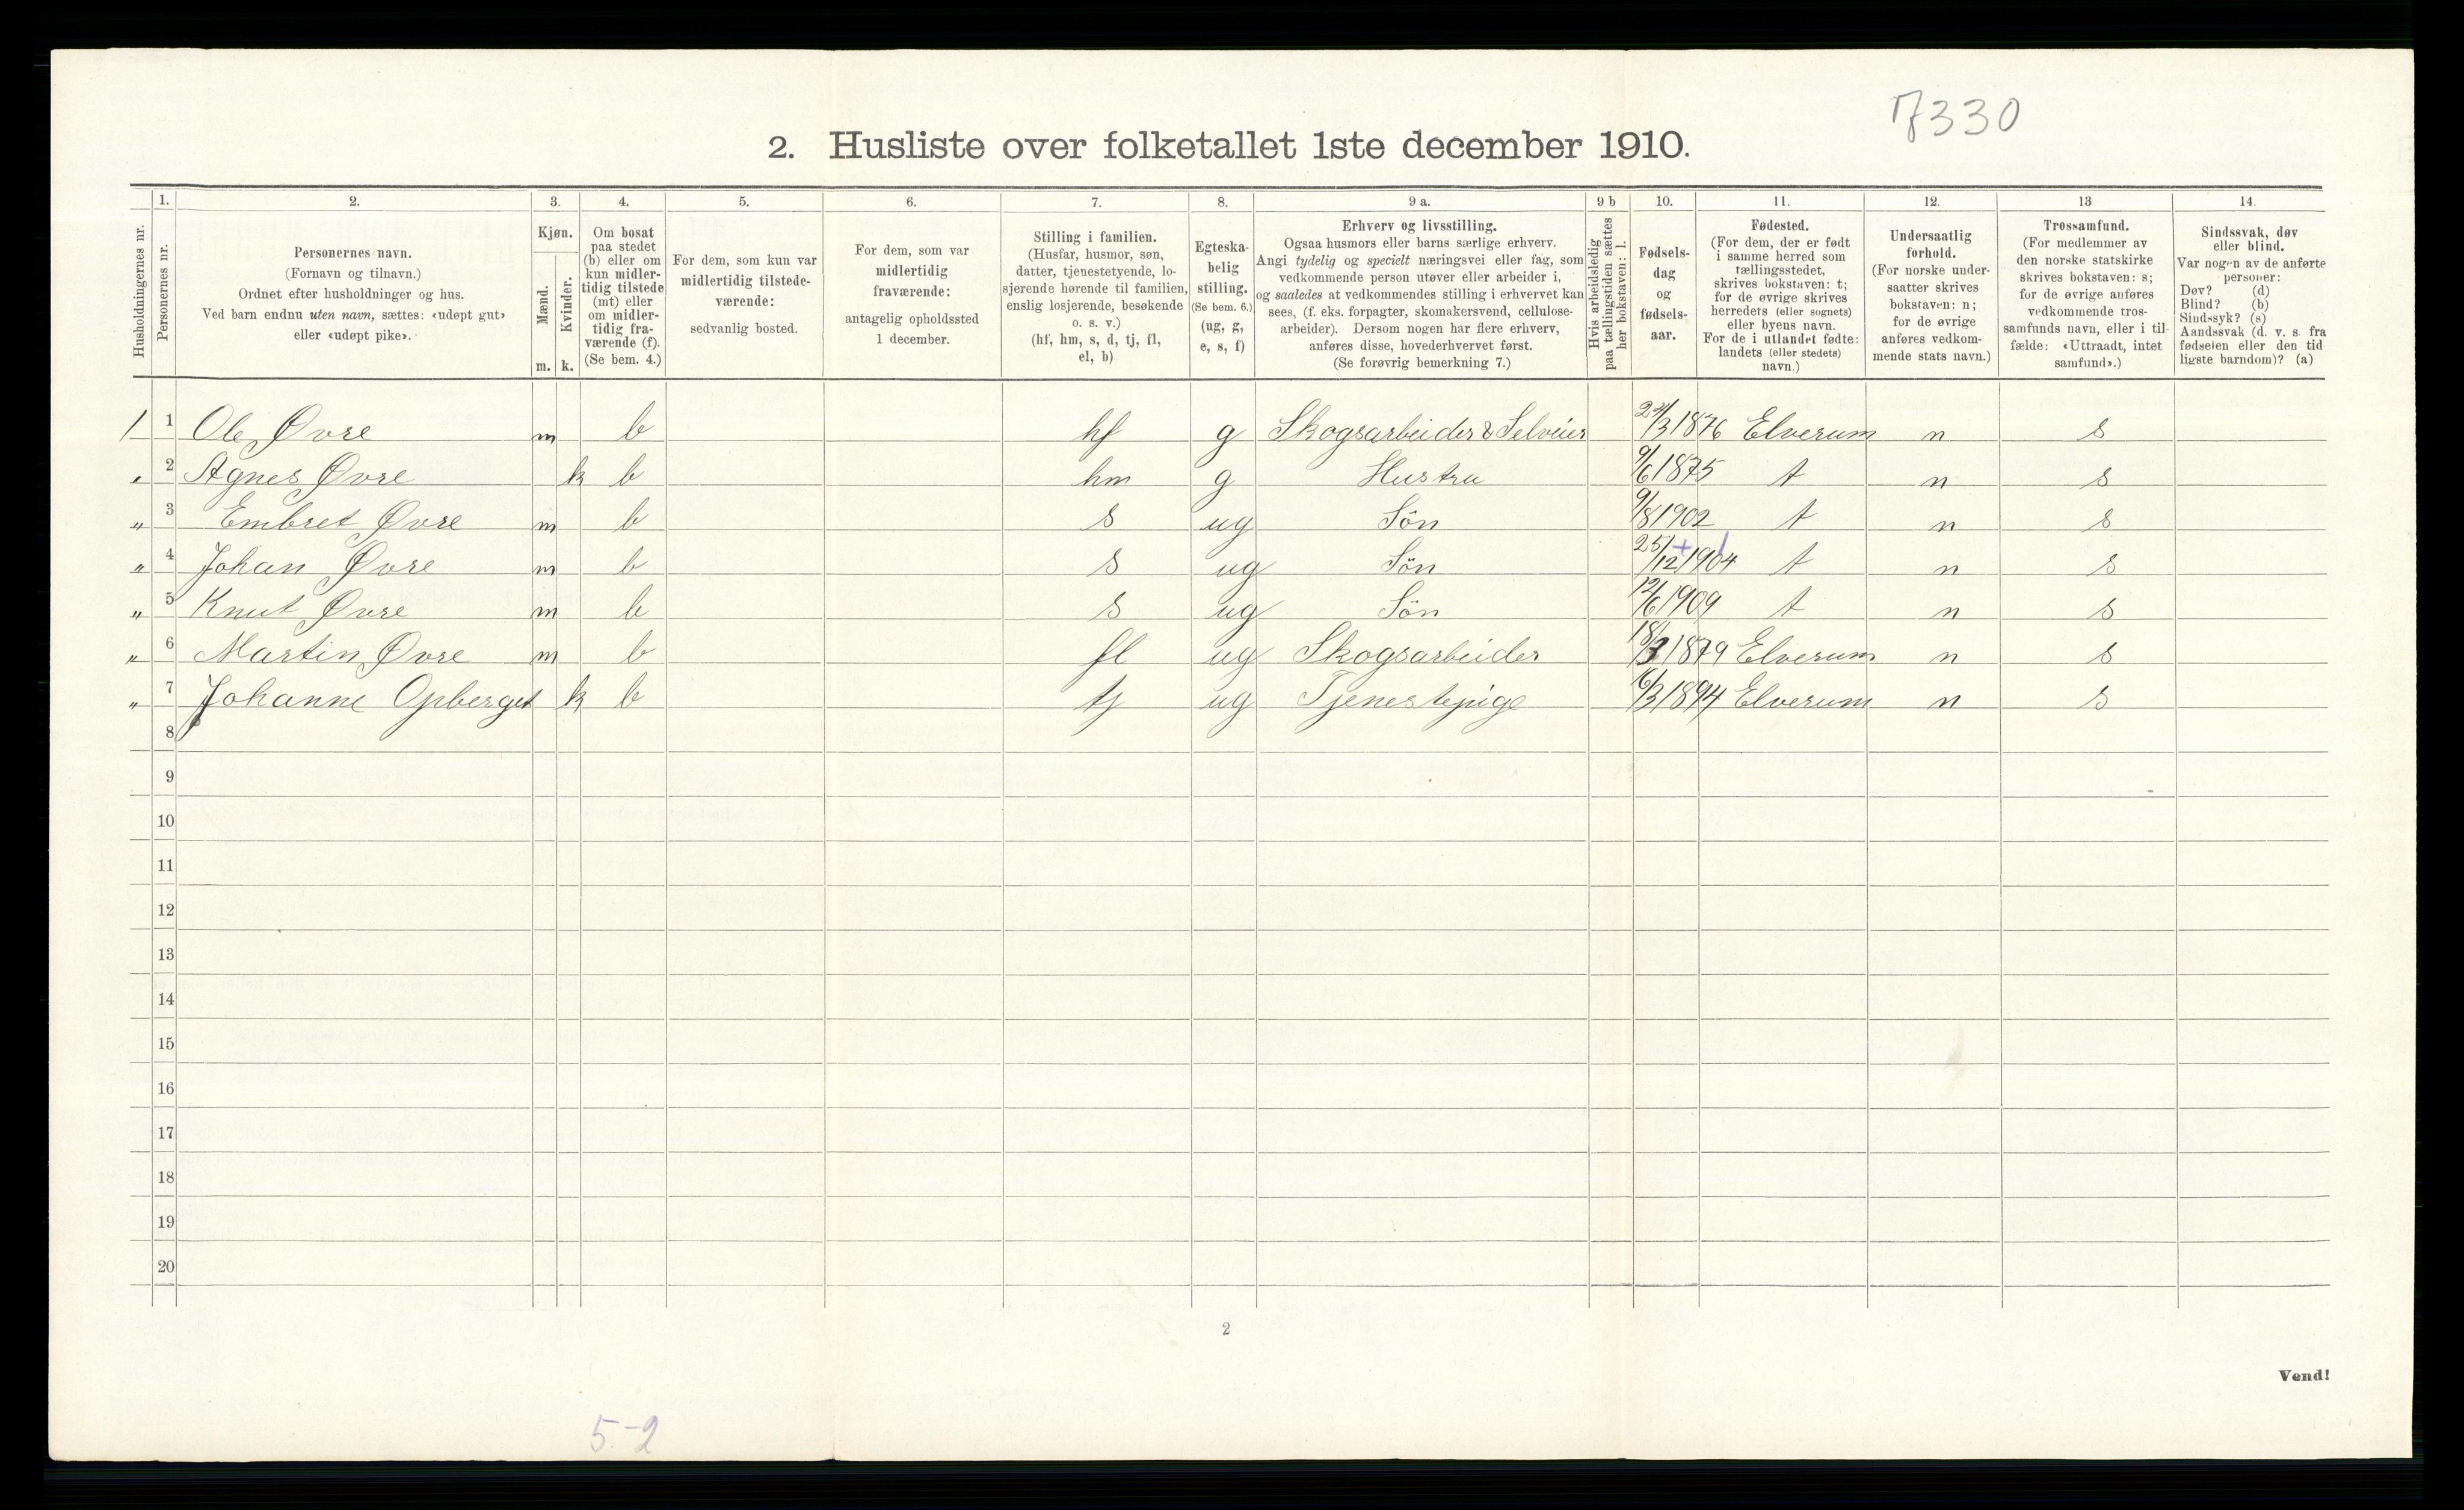 7330
2. Husliste over folketallet 1ste december 1910.
1. 2. 3. 4. 5. 6. 7. 8. 9 a. 9 b 10. 11. 12. 13 14.
Husholdningernes nr.
Personernes nr.
Personernes navn.
(Fornavn og tilnavn.)
Ordnet efter husholdninger og hus.
Ved barn endnu uten navn, sættes: «udøpt gut»
eller «udøpt pike».
Kjøn.
Mænd.
Kvinder.
m. k.
Om bosat
paa stedet
(b) eller om
kun midler-
tidig tilstede
(mt) eller
om midler-
tidig fra-
værende (f).
(Se bem. 4.)
For dem, som kun var
midlertidig tilstede-
værende:
sedvanlig bosted.
For dem, som var
midlertidig
fraværende:
antagelig opholdssted
1 december.
Stilling i familien.
(Husfar, husmor, søn,
datter, tjenestetyende, lo-
sjerende hørende til familien,
enslig losjerende, besøkende
o. s. v.)
(hf, hm, s, d, tj, fl,
el, b)
Egteska-
belig
stilling.
(Se bem. 6.)
(ug, g,
e, s, f)
Erhverv og livsstilling.
Ogsaa husmors eller barns særlige erhverv.
Angi tydelig og specielt næringsvei eller fag, som
vedkommende person utøver eller arbeider i,
og saaledes at vedkommendes stilling i erhvervet kan
sees, (f. eks. forpagter, skomakersvend, cellulose-
arbeider). Dersom nogen har flere erhverv,
anføres disse, hovederhvervet først.
(Se forøvrig bemerkning 7.)
Hvis arbeidsledig
paa tællingstiden sættes
her bokstaven: l.
Fødsels-
dag
og
fødsels-
aar.
Fødested.
(For dem, der er født
i samme herred som
tællingsstedet,
skrives bokstaven: t;
for de øvrige skrives
herredets (eller sognets)
eller byens navn.
For de i utlandet fødte:
landets (eller stedets)
navn.)
Undersaatlig
forhold.
(For norske under-
saatter skrives
bokstaven: n;
for de øvrige
anføres vedkom-
mende stats navn.)
Trossamfund.
(For medlemmer av
den norske statskirke
skrives bokstaven: s;
for de øvrige anføres
vedkommende tros-
samfunds navn, eller i til-
fælde: «Uttraadt, intet
samfund».)
Sindssvak, døv
eller blind.
Var nogen av de anførte
personer:
Døv? (d)
Blind? (b)
Sindssyk? (s)
Aandssvak (d. v. s. fra
fødselen eller den tid
ligste barndom)? (a)
1 1 Ole Øvre m b hf g Skogsarbeider & Selveier 24/3 1876 Elverum n s
" 2 Agnes Øvre k b hm g Hustru 9/6 1875 t n s
" 3 Embret Øvre m b s ug Sön 9/8 1902 t n s
" 4 Johan Øvre m b s ug Sön 25/12 1904 t n s
" 5 Knut Øvre m b s ug Sön 12/6 1909 t n s
" 6 Martin Øvre m b fl ug Skogsarbeider 18/3 1879 Elverum n s
" 7 Johanne Opberget k b tj ug Tjenestepige 16/3 1894 Elverum n s
8
9
10
11
12
13
14
15
16
17
18
19
20
2
Vend!
5-2